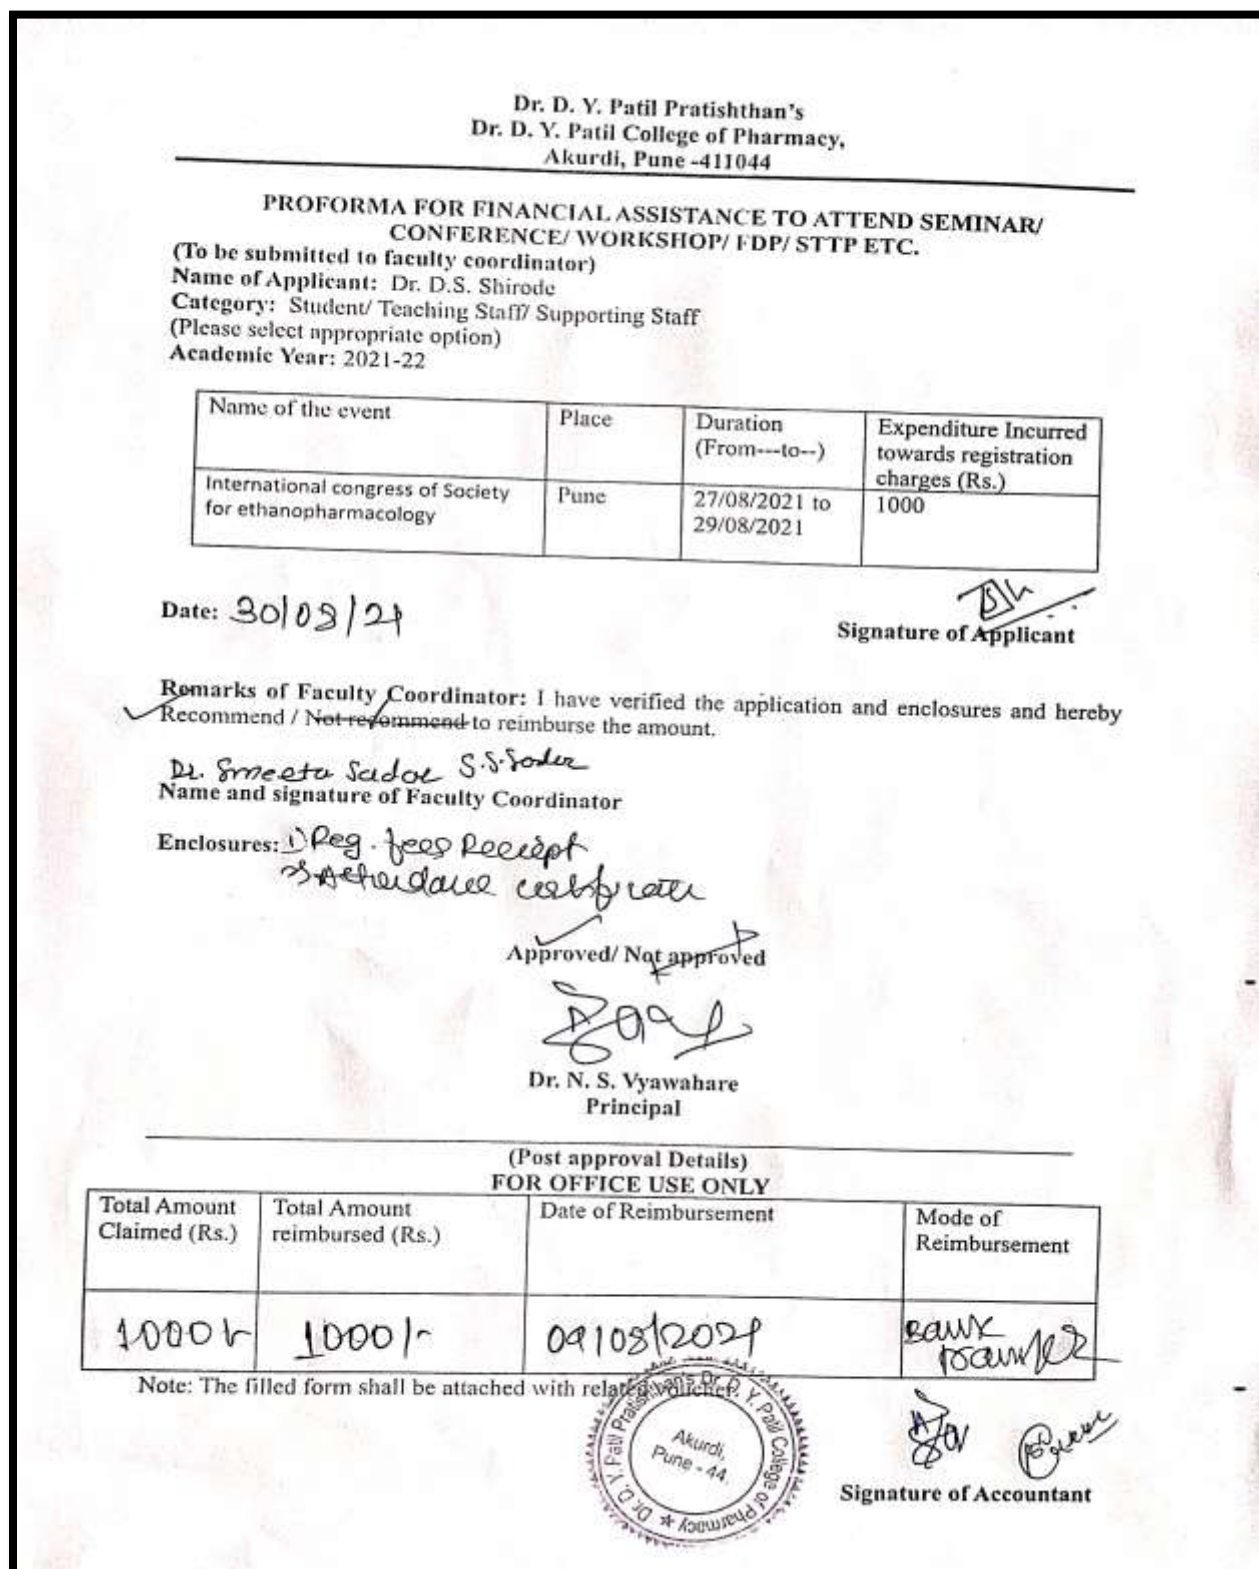 Dr. D. Y. Patil Pratishthan's
Dr. D. Y. Patil College of Pharmacy,
Akurdi, Pune -411044
PROFORMA FOR FINANCIAL ASSISTANCE TO ATTEND SEMINAR/
CONFERENCE/ WORKSHOP/ FDP/ STTP ETC.
(To be submitted to faculty coordinator)
Name of Applicant: Dr. D.S. Shirode
Category: Student/ Teaching Staff/ Supporting Staff
(Please select appropriate option)
Academic Year: 2021-22
Name of the event
Place
Duration
(From---to--)
Expenditure Incurred
towards registration
charges (Rs.)
International congress of Society
for ethanopharmacology
Pune
27/08/2021 to
29/08/2021
1000
Date: 30/08/21
Signature of Applicant
Remarks of Faculty Coordinator: I have verified the application and enclosures and hereby
Recommend / Not recommend to reimburse the amount.
Dr. Smeeta Sadar S.S.Sadar
Name and signature of Faculty Coordinator
Enclosures: 1) Reg. fees Receipt
2) Attendance certificate
Approved/ Not approved
Dr. N. S. Vyawahare
Principal
(Post approval Details)
FOR OFFICE USE ONLY
Total Amount
Claimed (Rs.)
Total Amount
reimbursed (Rs.)
Date of Reimbursement
Mode of
Reimbursement
1000/-
1000/-
09/08/2021
Bank
Transfer
Note: The filled form shall be attached with related voucher.
Dr. D. Y. Patil Pratishthan's Dr. D. Y. Patil College of Pharmacy
Akurdi,
Pune - 44.
Signature of Accountant